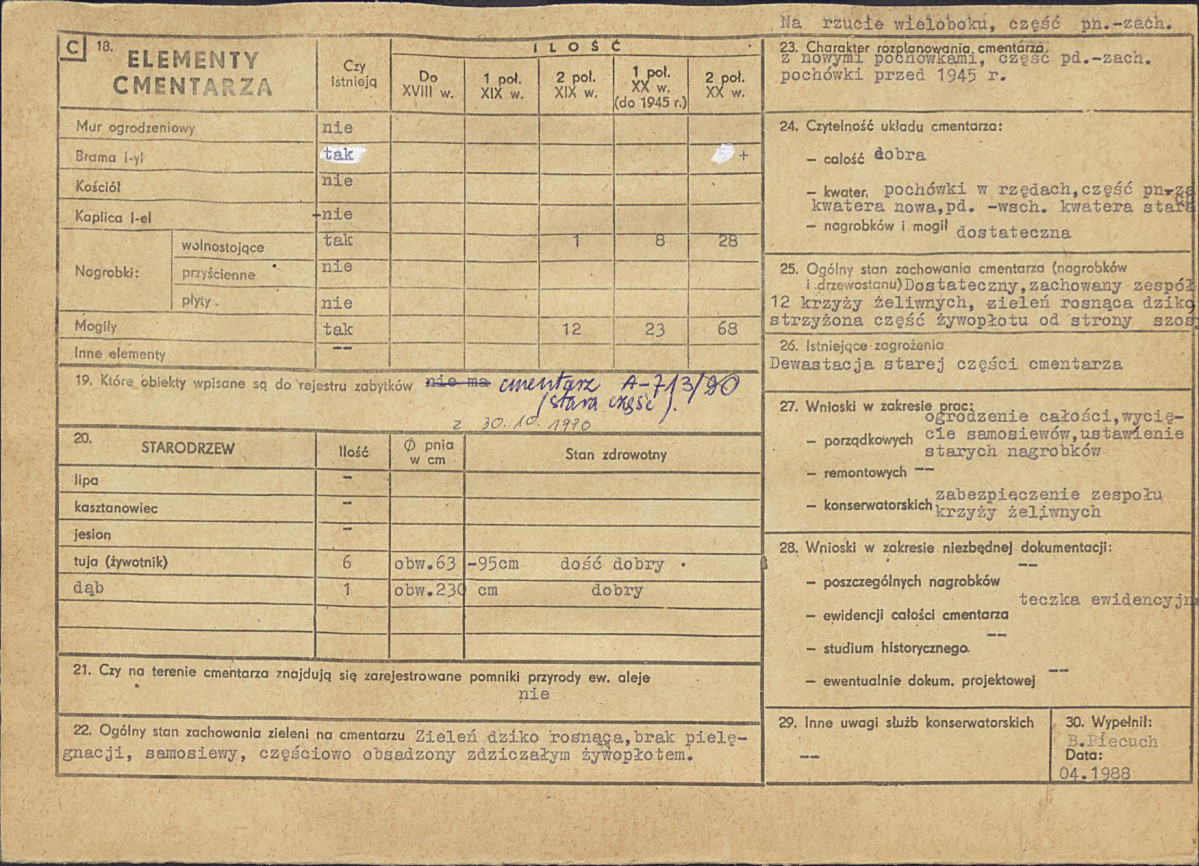 C 18. ELEMENTY
CMENTARZA
Czy
istnieją
ILOŚĆ
Do
XVIII w.
1 poł.
XIX w.
2 poł.
XIX w.
1 poł.
XX w.
(do 1945 r.)
2 poł.
XX w.
Mur ogrodzeniowy nie
Brama i-yl tak +
Kościół nie
Kaplica l-el -nie
Nagrobki:
wolnostojące tak 1 8 28
przyścienne nie
płyty nie
Mogiły tak 12 23 68
Inne elementy --
19. Które obiekty wpisane są do rejestru zabytków nie ma cmentarz A-713/90
(stara część).
z 30.10.1990
20. STARODRZEW Ilość Ø pnia
w cm Stan zdrowotny
lipa -
kasztanowiec -
jesion -
tuja (żywotnik) 6 obw.63 -95cm dość dobry
dąb 1 obw.230 cm dobry
21. Czy na terenie cmentarza znajdują się zarejestrowane pomniki przyrody ew. aleje
nie
22. Ogólny stan zachowania zieleni na cmentarzu Zieleń dziko rosnąca,brak pielę-
gnacji, samosiewy, częściowo obsadzony zdziczałym żywopłotem.
Na rzucie wieloboku, część pn.-zach.
23. Charakter rozplanowania cmentarza,
z nowymi pochówkami, część pd.-zach.
pochówki przed 1945 r.
24. Czytelność układu cmentarza:
- całość dobra
- kwater, pochówki w rzędach,część pn.-za
kwatera nowa,pd. -wsch. kwatera stara
- nagrobków i mogił dostateczna
25. Ogólny stan zachowania cmentarza (nagrobków
i drzewostanu) Dostateczny,zachowany zespół
12 krzyży żeliwnych, zieleń rosnąca dziko,
strzyżona część żywopłotu od strony szos
26. Istniejące zagrożenia
Dewastacja starej części cmentarza
27. Wnioski w zakresie prac:
ogrodzenie całości,wycię-
- porządkowych cie samosiewów,ustawienie
starych nagrobków
- remontowych --
- konserwatorskich zabezpieczenie zespołu
krzyży żeliwnych
28. Wnioski w zakresie niezbędnej dokumentacji:
--
- poszczególnych nagrobków
teczka ewidencyjn
- ewidencji całości cmentarza
--
- studium historycznego.
--
- ewentualnie dokum. projektowej
29. Inne uwagi służb konserwatorskich
--
30. Wypełnił:
B.Piecuch
Data:
04.1988